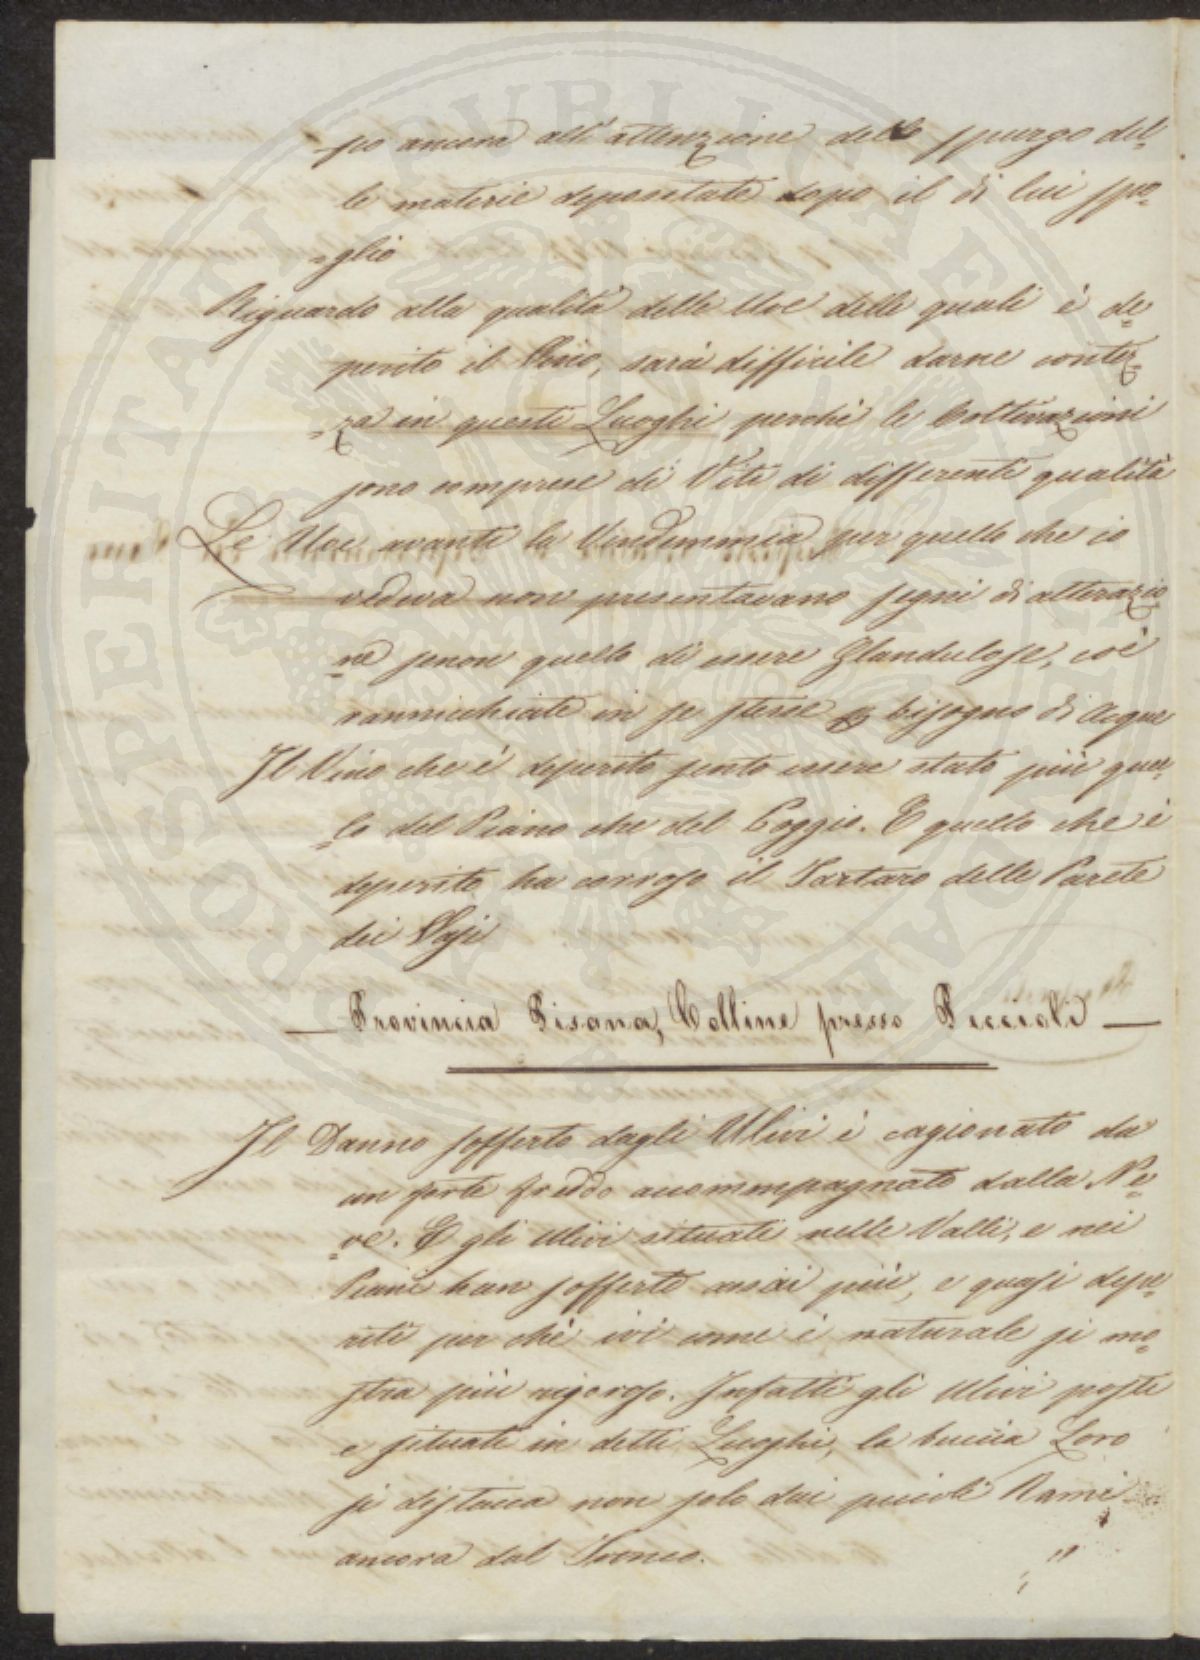 po ancora all'attenzione dello spurgo del-
le materie depositate dopo il di lui spo-
=glio
Riguardo alla qualità delle Uve delle quali è de=
perito il Vino, sarà difficile darne contez=
=za in questi Luoghi perchè le Coltivazioni
sono comprese di Viti di differenti qualità
Le Uve avante la Vindemmia per quello che io
vedeva non presentavano segni di alterazio=
=ne senon quello di essere Glandulose, coè
rannicchiate in se stesse p bisogno di Acque
Il Vino che è deperito sento essere stato più quel=
=lo del Piano che del Poggio. E quello che è
deperito, ha corroso il Tartaro delle Parete
dei Vasi
— Provincia Pisana, Colline presso Peccioli —
Il Danno sofferto dagli Ulivi è cagionato da
un forte freddo accommpagnato dalla Ne=
=ve. E gli Ulivi situati nelle Valli, e nei
Piani han sofferto assai più, e quasi depe=
riti per chè ivi come è naturale si mo=
stra più rigoroso. Infatti gli Ulivi posti
e situati in detti Luoghi, la buccia Loro
si distacca non solo dai piccoli Rami
ancora dal Tronco.
PROSPERITATI PVBLICAE AVGENDAE